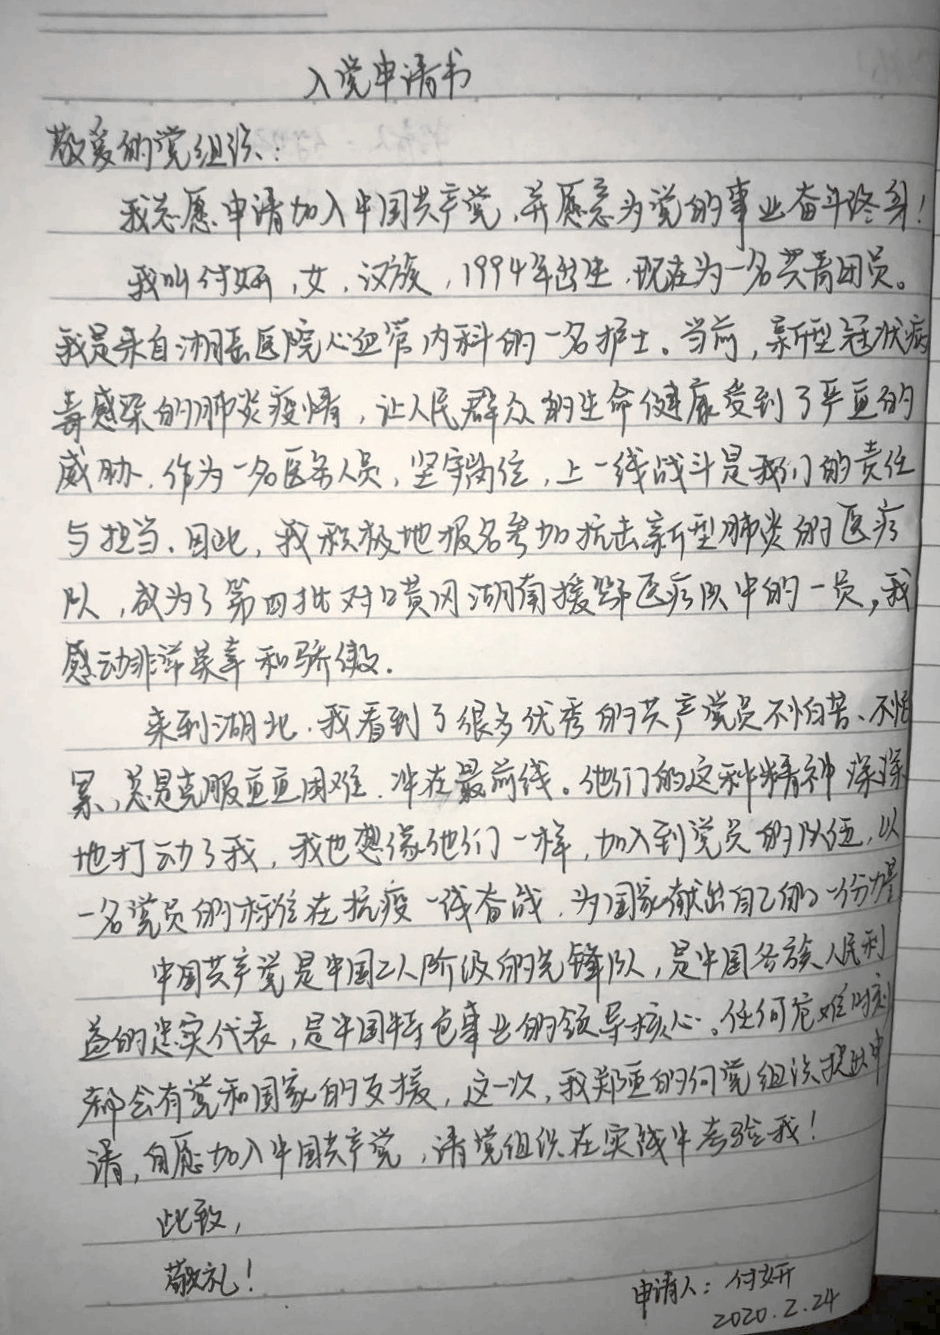 入党申请书
敬爱的党组织:
我志愿申请加入中国共产党,并愿意为党的事业奋斗终身!
我叫付妍,女,汉族,1994年出生,现在为一名共青团员。
我是来自湘岳医院心血管内科的一名护士。当前,新型冠状病
毒感染的肺炎疫情,让人民群众的生命健康受到了严重的
威胁.作为一名医务人员,坚守岗位,上一线战斗是我们的责任
与担当.因此,我积极地报名参加抗击新型肺炎的医疗
队,成为了第四批对口黄冈湖南援鄂医疗队中的一员,我
感动非常荣幸和骄傲.
来到湖北.我看到了很多优秀的共产党员不怕苦、不怕
累,总是克服重重困难.冲在最前线。他们的这种精神深深
地打动了我,我也想像他们一样,加入到党员的队伍,以
一名党员的标准在抗疫一线奋战.为国家献出自己的一份力量
中国共产党是中国工人阶级的先锋队,是中国各族人民利
益的忠实代表,是中国特色事业的领导核心.任何危难时刻
都会有党和国家的支援,这一次,我郑重的向党组织提出申
请,自愿加入中国共产党,请党组织在实践中考验我!
此致,
敬礼!
申请人:付妍
2020.2.24